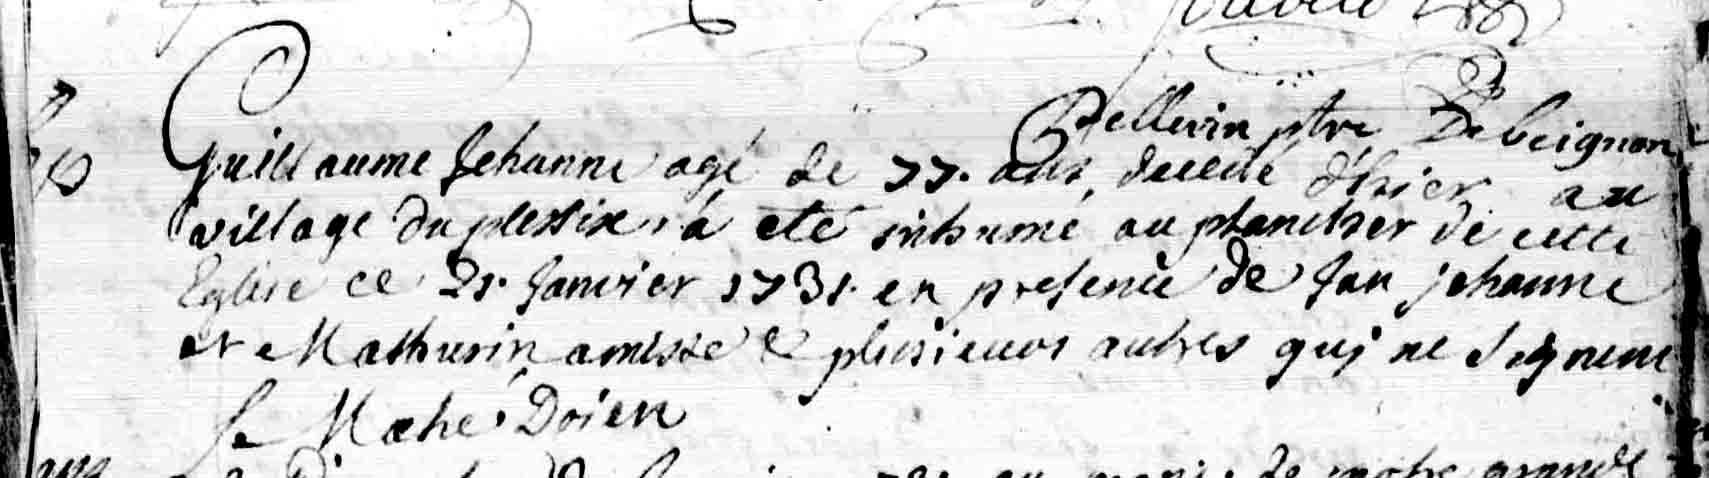 Pellerin ptre De beignon
Guillaume Jehanne agé de 77. ans, decedé d'hier au
village du plessix, a eté inhumé au plancher de cette
Eglise ce 21. Janvier 1731. en presence de Jan jehanne
et Mathurin amisse & plusieurs autres quj ne signent
f. Mahé Doien
de notre grande